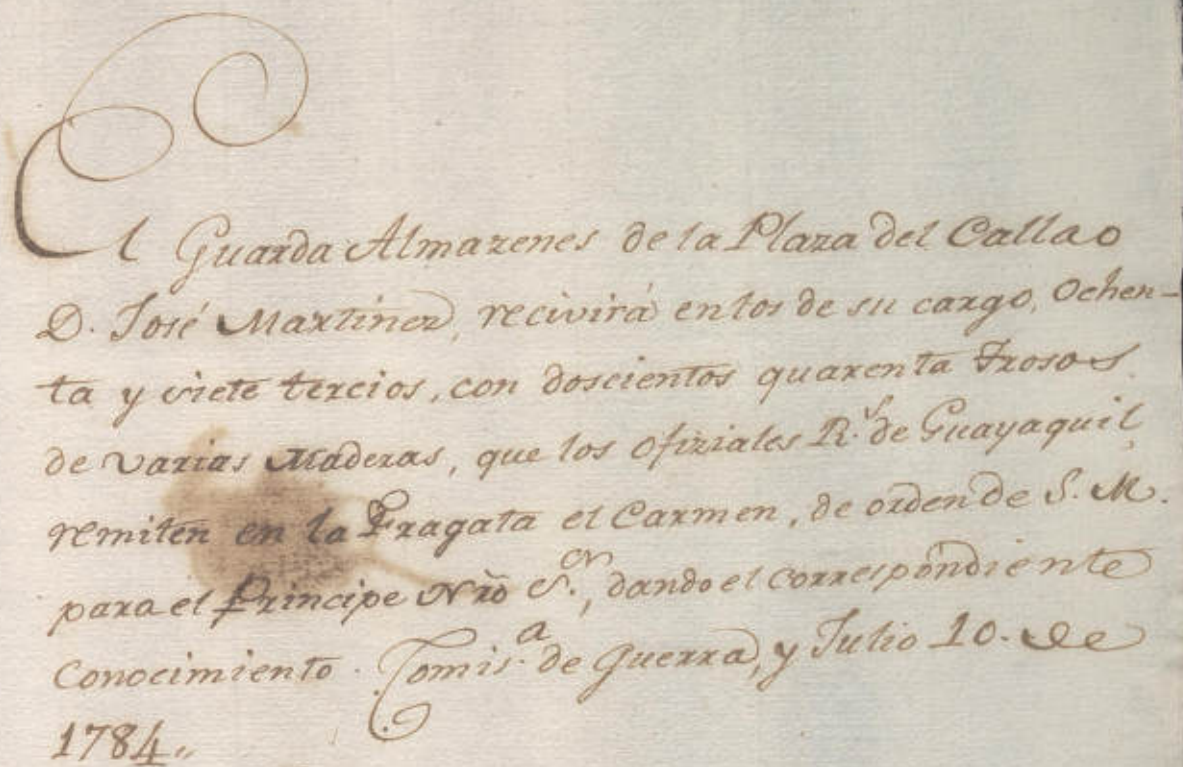 El Guarda Almazenes de la Plaza del Callao
D. José Martinez, recivirá en los de su cargo, Ochen-
ta y siete tercios, con doscientos quarenta trosos
de varias Maderas, que los ofiziales R.s de Guayaquil,
remiten en la Fragata el Carmen, de orden de S. M.
para el Principe Nrō S.or, dando el correspondiente
Conocimiento. Comis.a de Guerra, y Julio 10. de
1784.,,